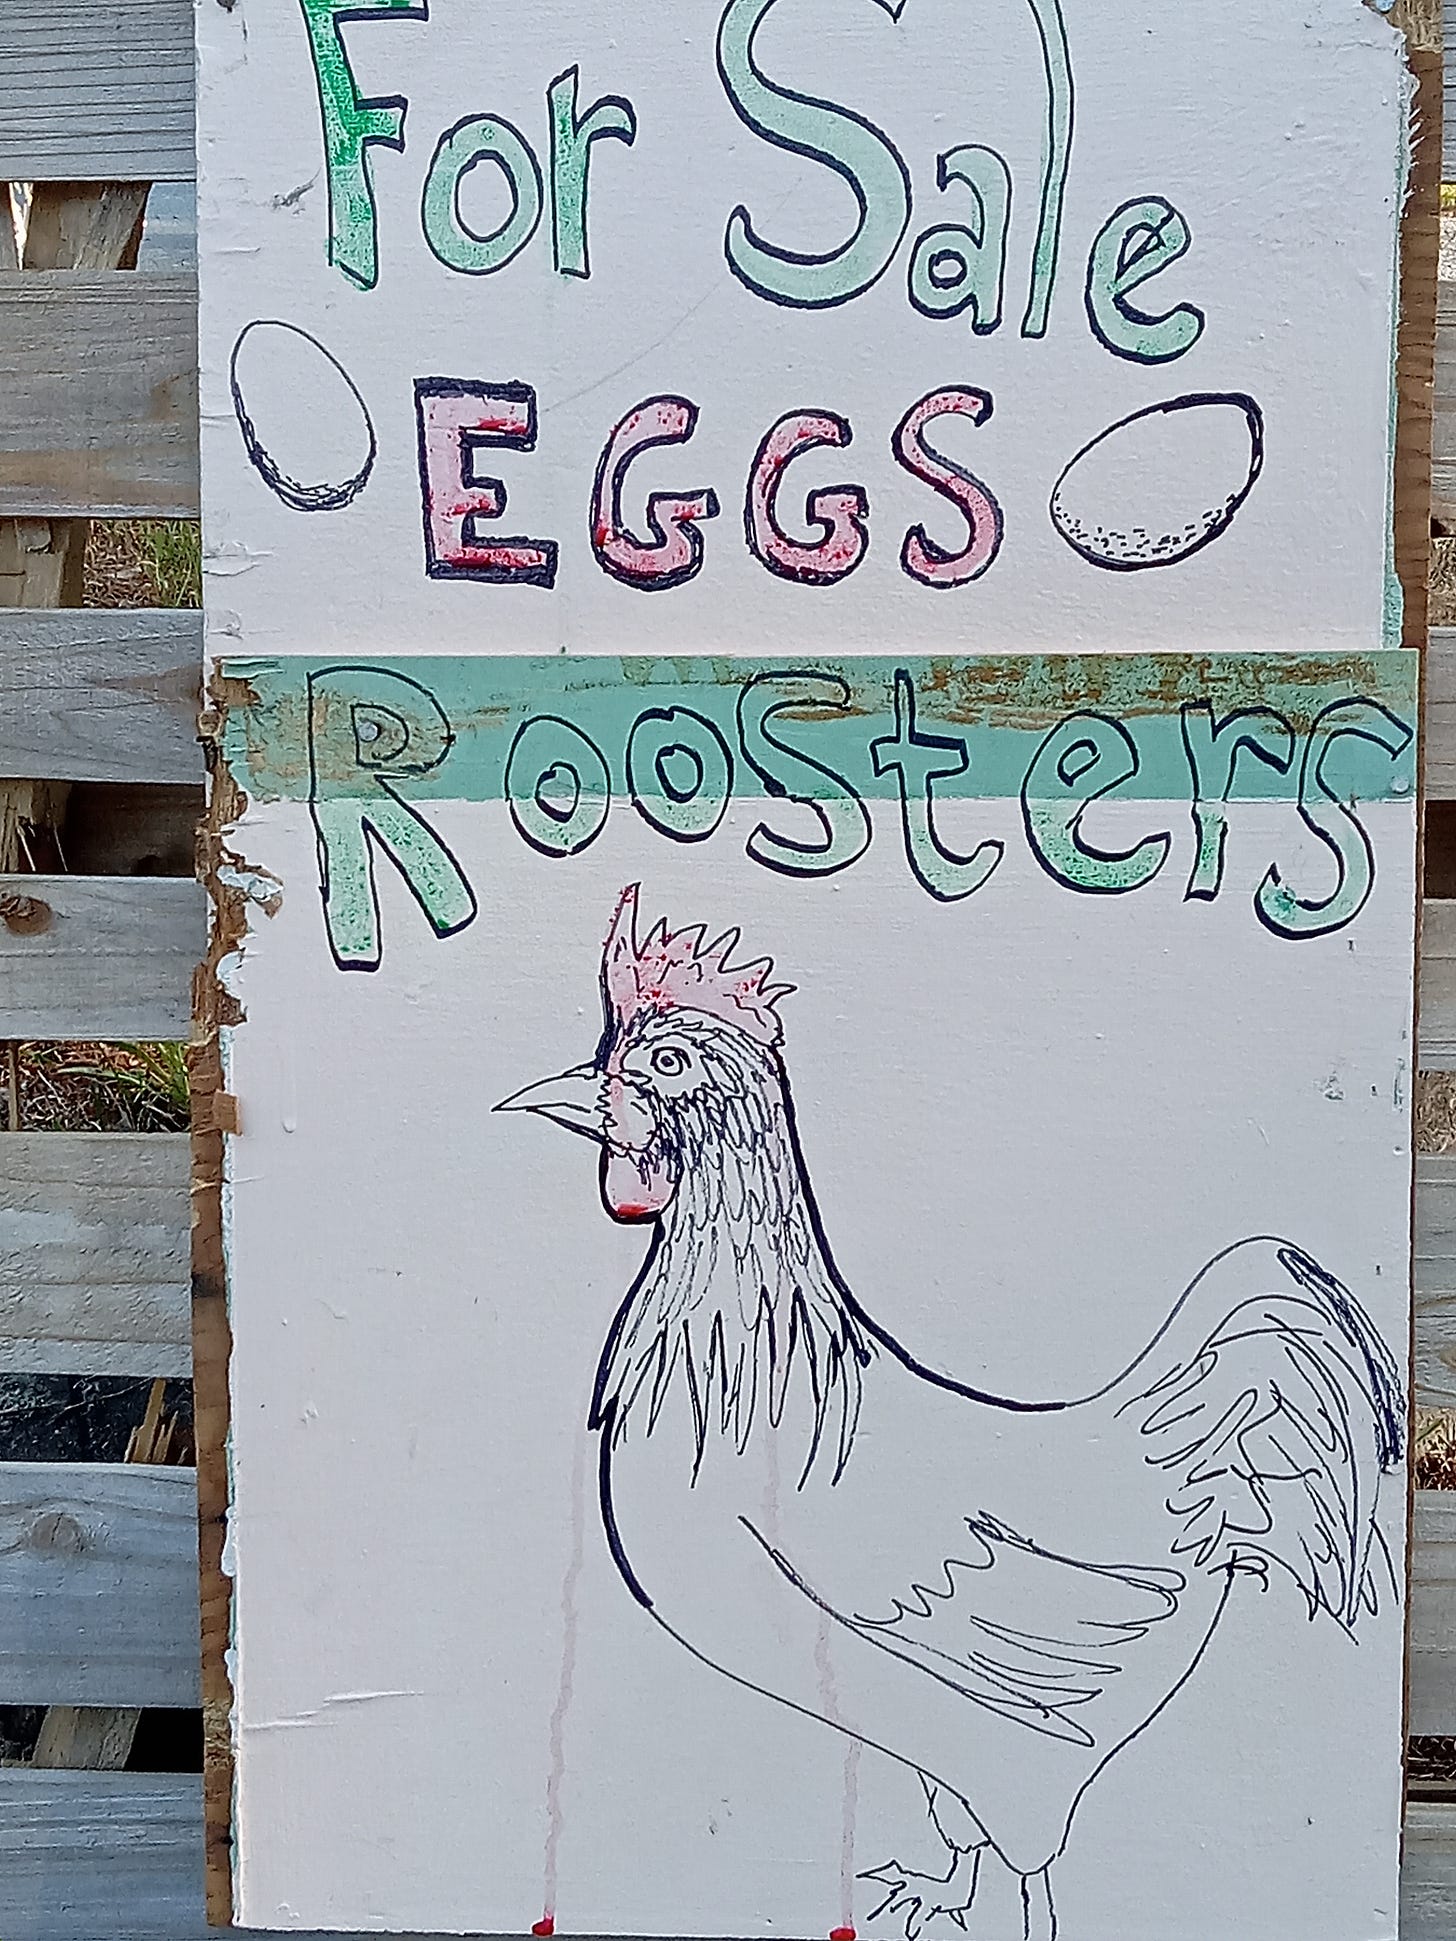 For Sale
EGGS
Roosters